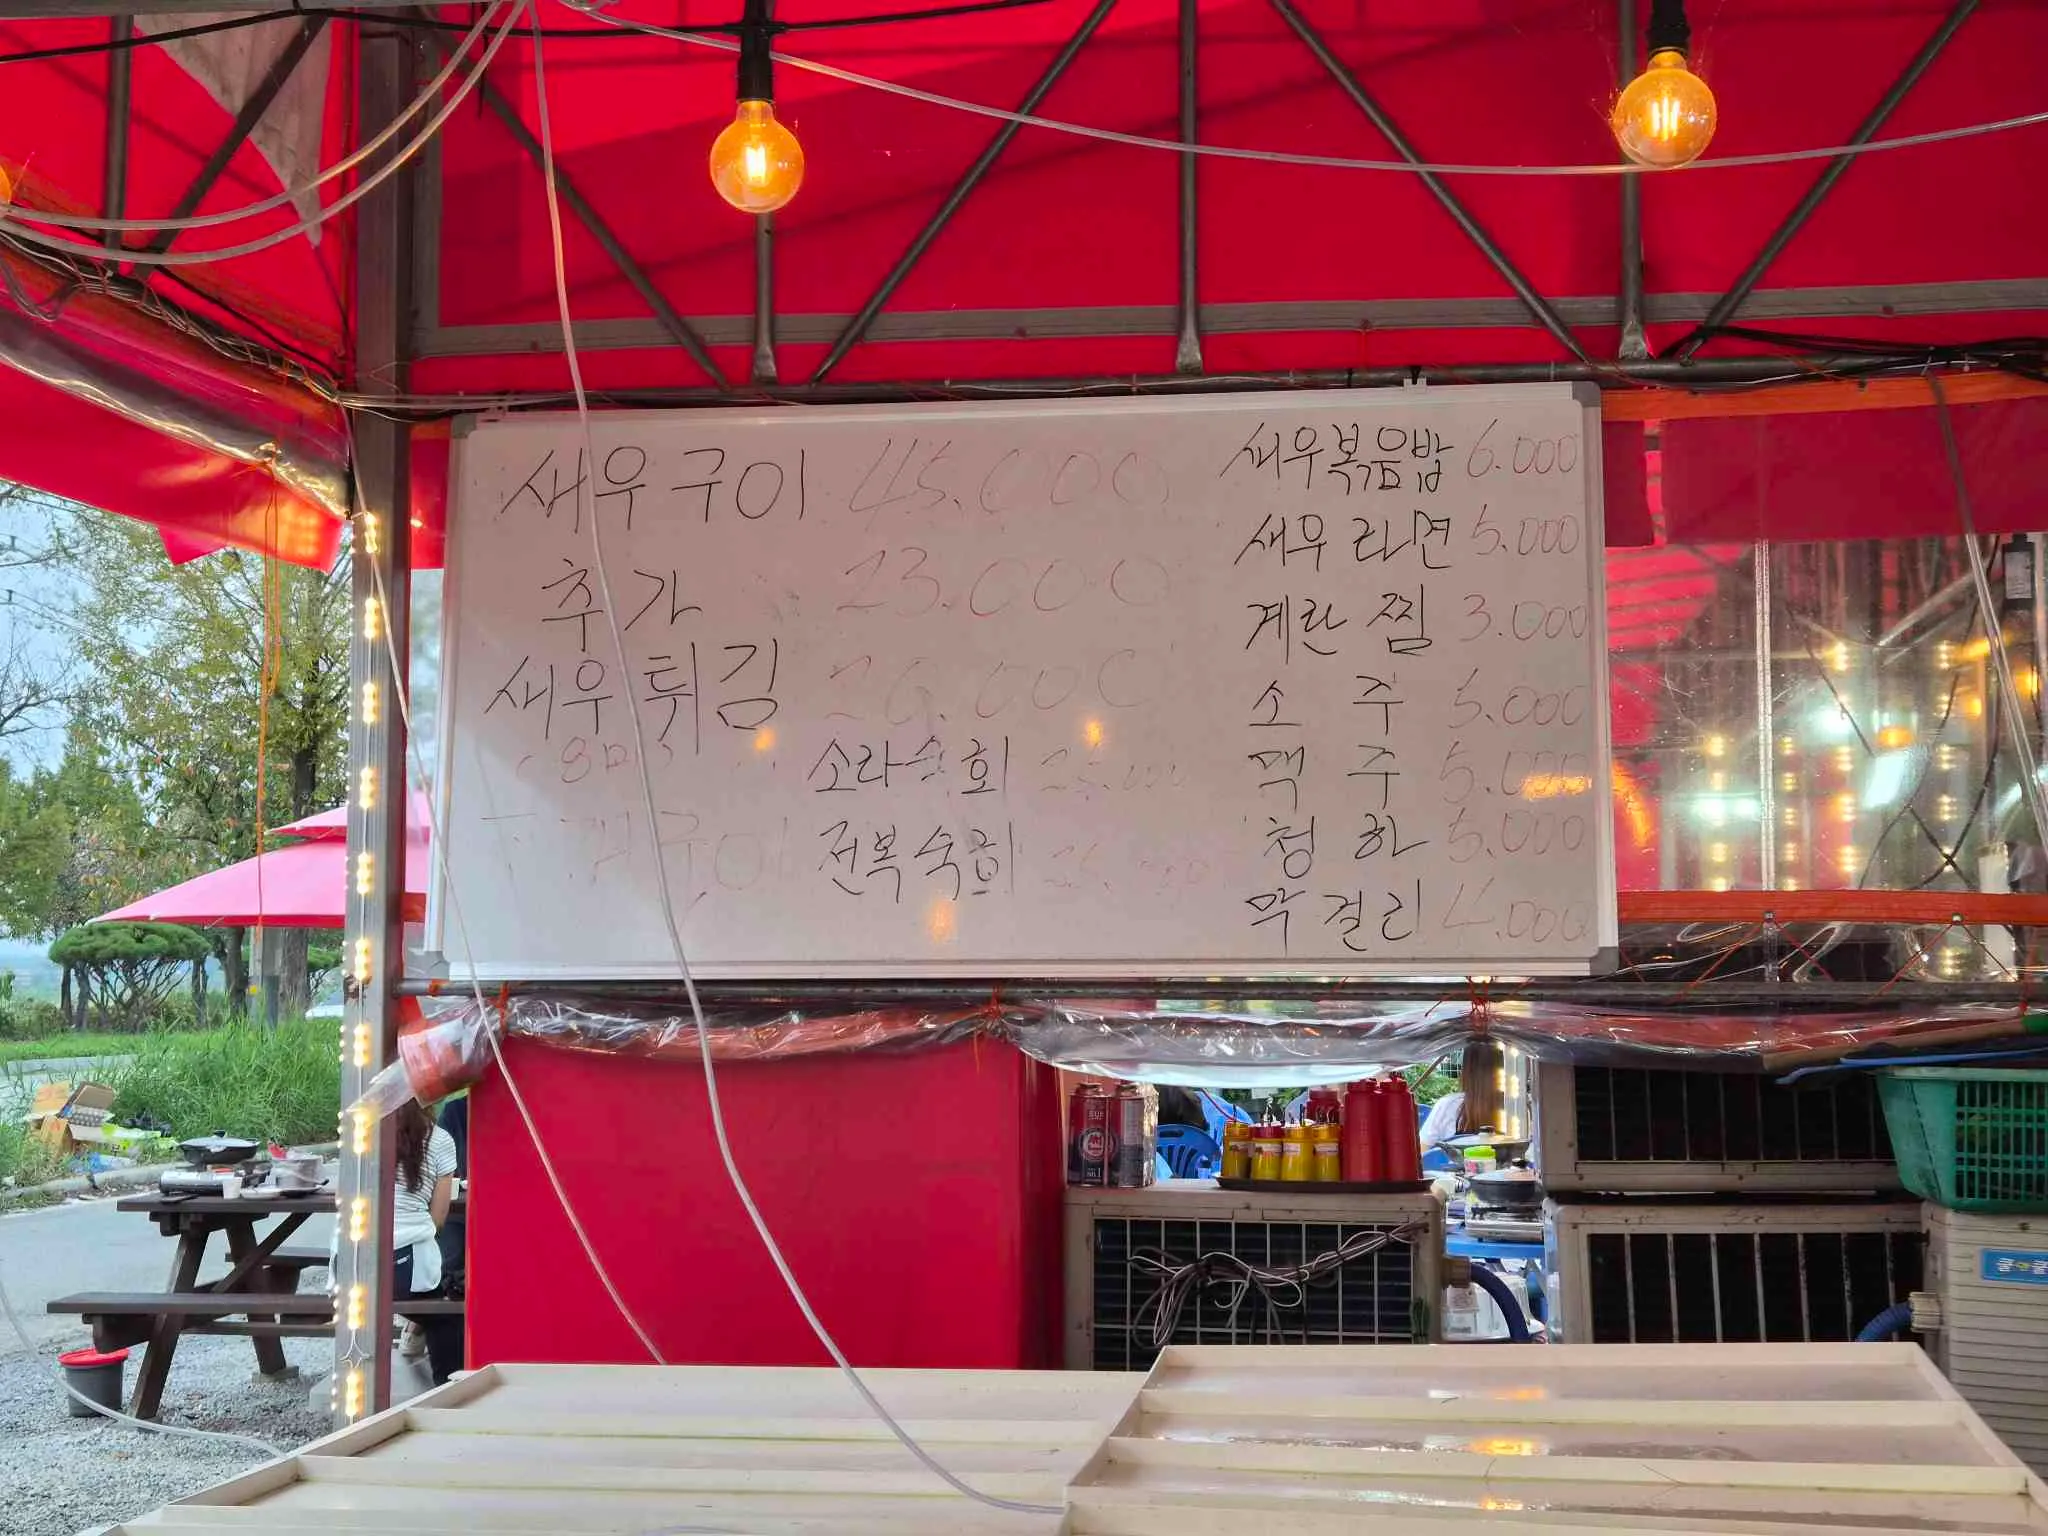 새우구이 45.000
추가 23.000
새우튀김 20.000
소라숙회
전복숙회
새우볶음밥 6.000
새우라면 5.000
계란찜 3.000
소주 5.000
맥주 5.000
청하 5.000
막걸리 4.000